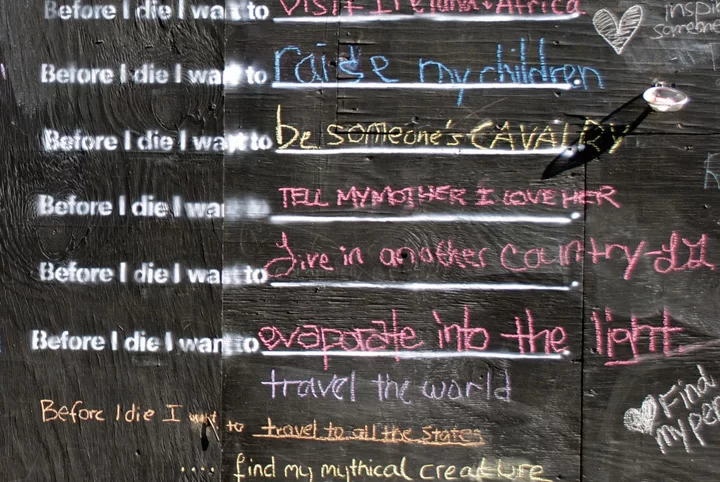 Before I die I want to visit Ireland & Africa
inspire
someone
Before I die I want to raise my children
Before I die I want to be someone's CAVALRY
Before I die I want to TELL MY MOTHER I LOVE HER
Before I die I want to Live in another country -
Before I die I want to evaporate into the light
travel the world
Find
my
Before I die I want to travel to all the states
.... find my mythical creature